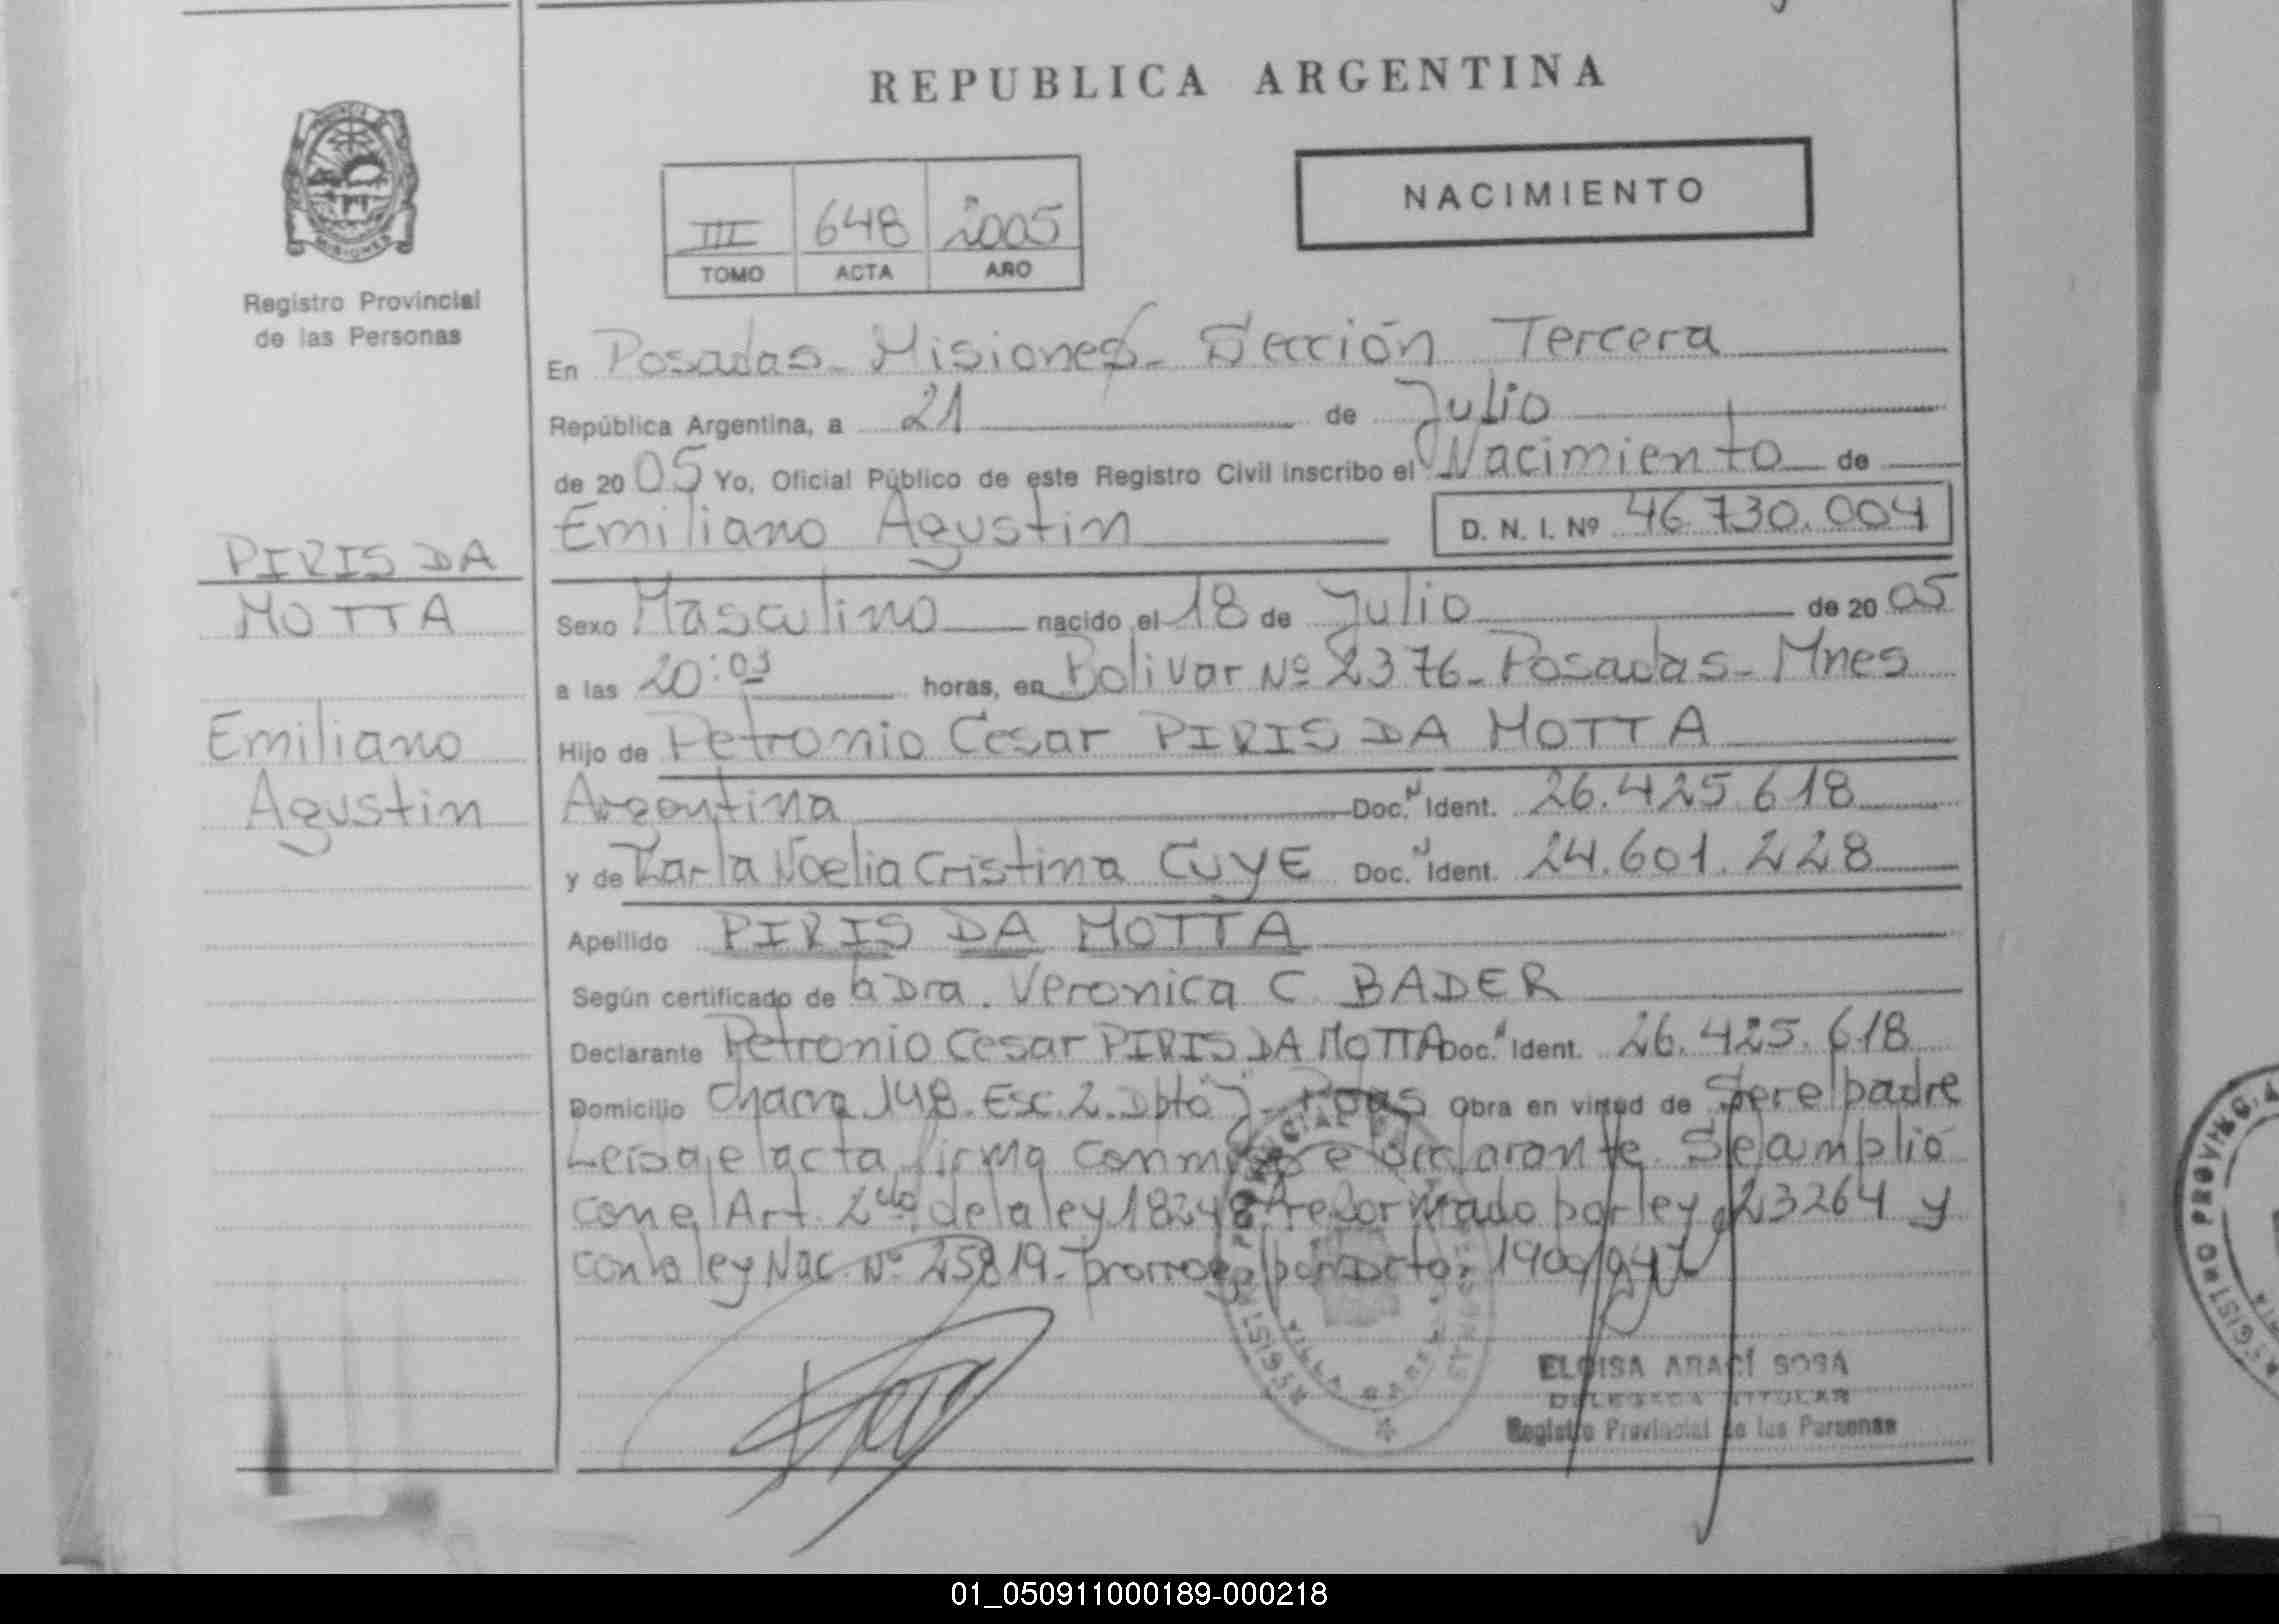 REPUBLICA ARGENTINA
NACIMIENTO
III 648 2005
TOMO ACTA AÑO
MISIONES
Registro Provincial
de las Personas
PIRIS DA
MOTTA
Emiliano
Agustin
En Posadas - Misiones - Sección Tercera
República Argentina, a 21 de Julio
de 2005 Yo, Oficial Público de este Registro Civil inscribo el Nacimiento de
Emiliano Agustin D. N. I. Nº 46.730.004
Sexo Masculino nacido el 18 de Julio de 2005
a las 20:03 horas, en Bolivar Nº 2376 - Posadas - Mnes
Hijo de Petronio Cesar PIRIS DA MOTTA
Argentina Doc. Ident. 26.425.618
y de Karla Noelia Cristina CUYE Doc. Ident. 24.601.228
Apellido PIRIS DA MOTTA
Según certificado de la Dra. Veronica C. BADER
Declarante Petronio Cesar PIRIS DA MOTTA Doc. Ident. 26.425.618
Domicilio Chacra 148. Esc. 2. Dpto "J" - Pdas Obra en virtud de Ser el padre
Leida el acta firma conmigo el declarante. Se amplió
con el Art. 2do de la ley 18248 reformado por ley 23264 y
con la ley Nac. Nº 25819 - prorrog por Dcto:
ELOISA ARACÍ SOSA
DELEGADA TITULAR
Registro Provincial de las Personas
01_050911000189-000218